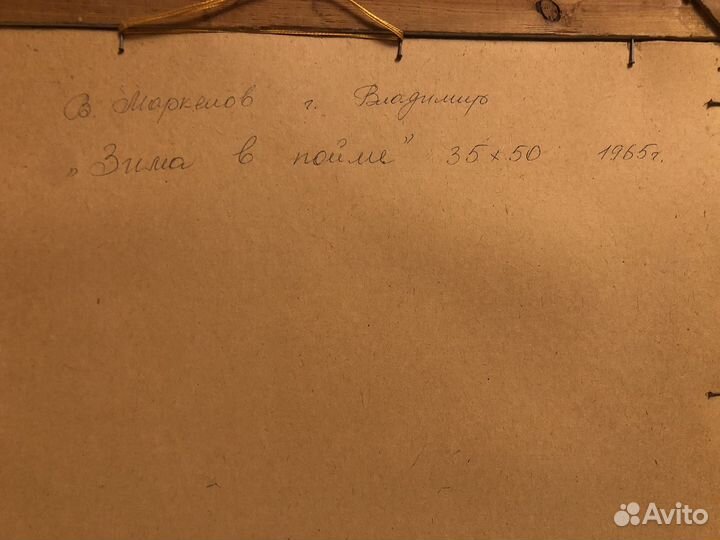 В. Маркелов г. Владимир
„Зима в пойме" 35х50 1965г.
Avito